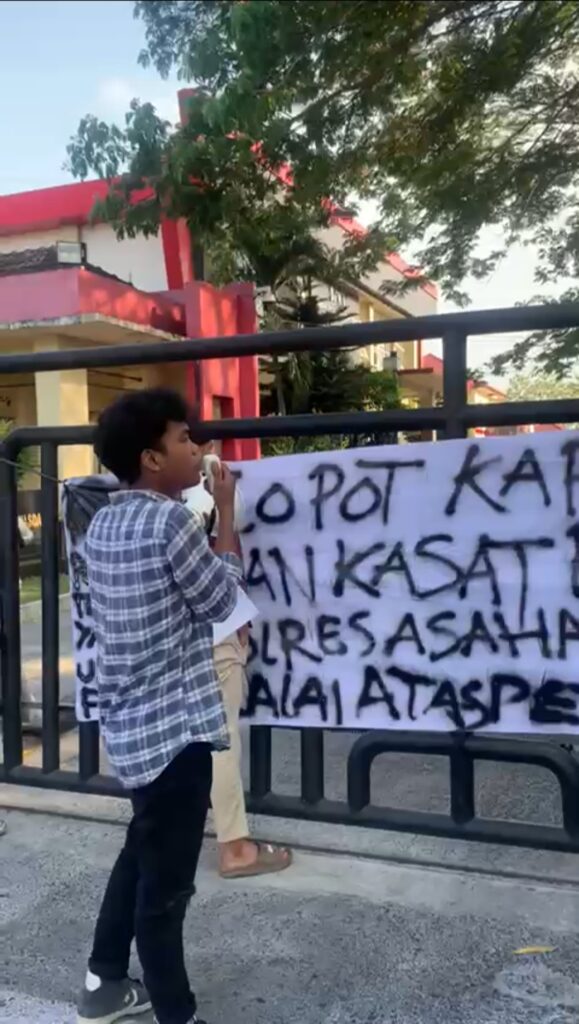 COPOT KAP
AN KASAT
OLRES ASAHA
ALAI ATAS PE